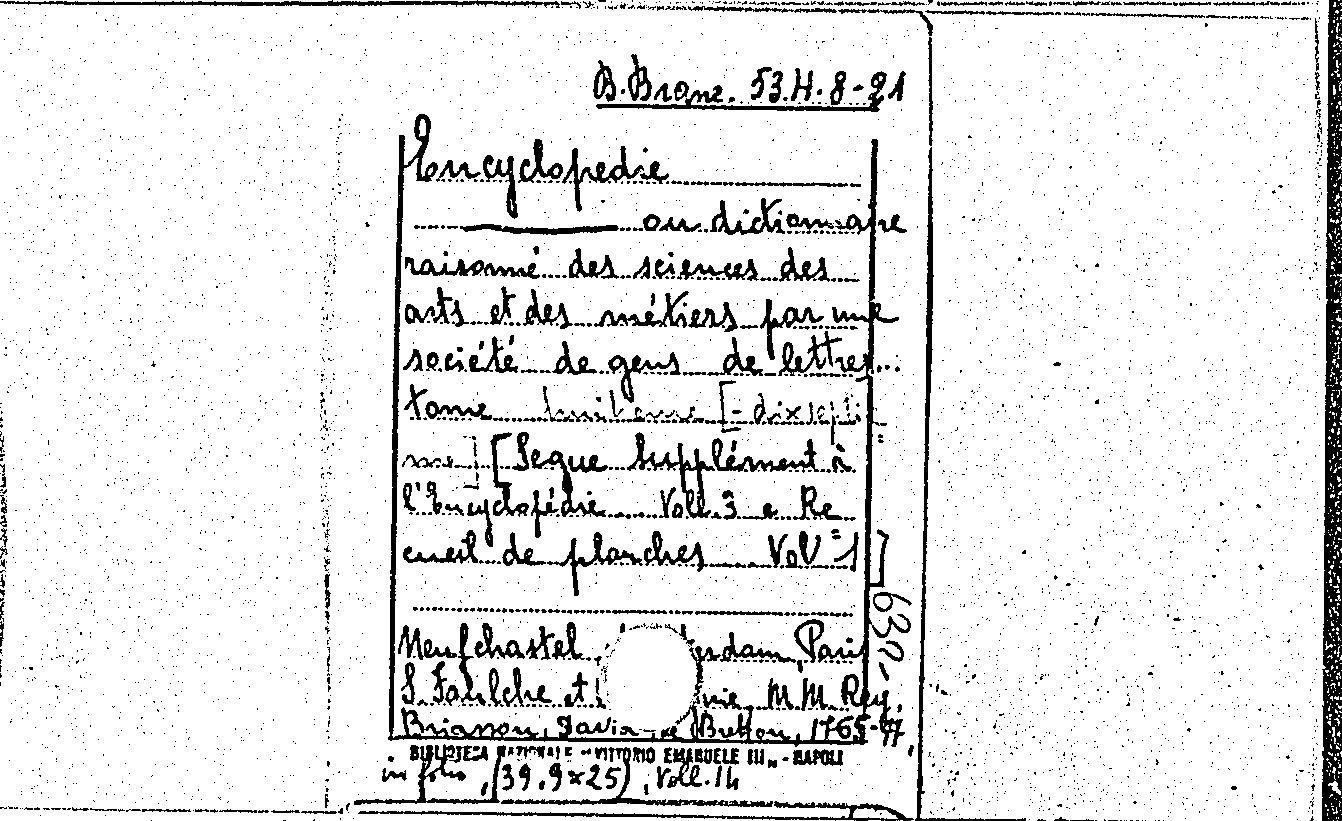 B. Branc. 53.H.8-21
Encyclopedie
ou dictionnaire
raisonné des sciences des
arts et des métiers par une
société de gens de lettres...
tome huitieme [- dixseptie=
me] [Segue Supplément à
l'Encyclopédie Voll. 3 e Re
cueil de planches Vol=1]
630
Neufchastel, Paris
S. Faulche et M.M Rey,
Briasson, Breton, 1765-77,
BIBLIOTECA NAZIONALE "VITTORIO EMANUELE III" - NAPOLI
in folio, (39.9x25), Voll. 14